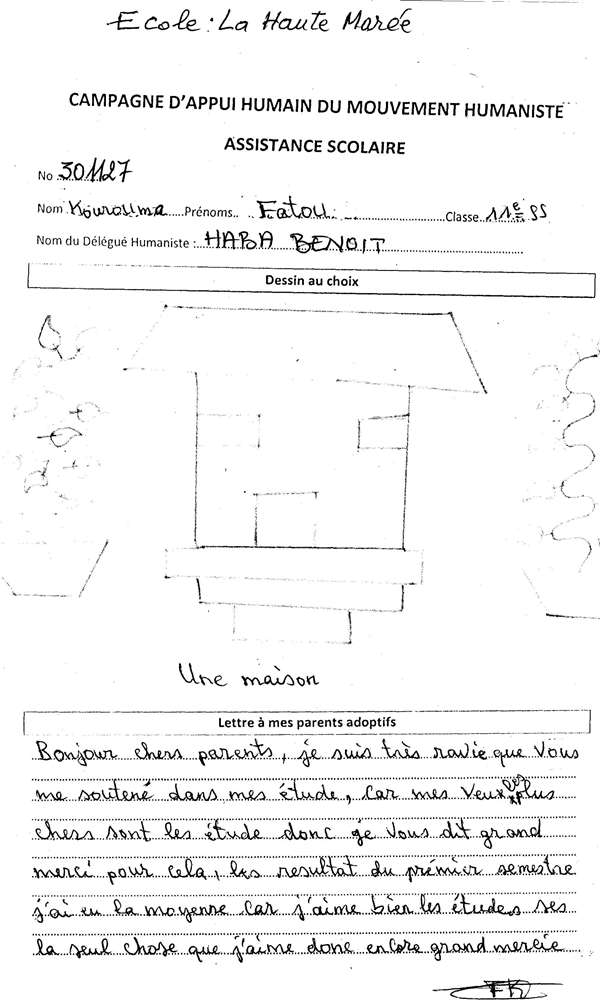 Ecole : La Haute Marée
CAMPAGNE D'APPUI HUMAIN DU MOUVEMENT HUMANISTE
ASSISTANCE SCOLAIRE
No 301127
Nom Kourouma Prénoms.. Fatou Classe 11e SS
Nom du Délégué Humaniste : HABA BENOIT
Dessin au choix
Une maison
Lettre à mes parents adoptifs
Bonjour chers parents, je suis très ravie que Vous
me soutené dans mes étude, Car mes Veux les plus
chers sont les étude donc je Vous dit grand
merci pour cela, les resultat du prémier semestre
j'ai eu la moyenne Car j'aime bien les études ses
la seul chose que j'aime donc encore grand mercie